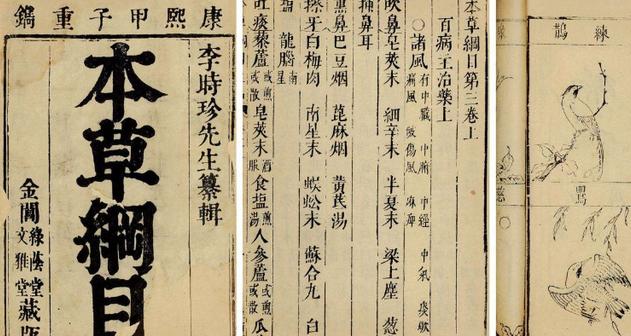 康熙甲子重鐫
李時珍先生纂輯
本草綱目
金閶綠蔭堂文雅堂藏版
本草綱目第三卷上
百病主治藥上
○諸風 有中臟 中腑 中經 中氣 痰厥
痛風 破傷風 麻痺
吹鼻皂莢末 細辛末 半夏末 梁上塵 葱
插鼻耳
熏鼻巴豆烟 蓖麻烟 黃芪湯
擦牙白梅肉 南星末 蜈蚣末 蘇合丸 白
龍腦
吐痰藜蘆 或煎或散 皂莢末 酒服 食塩 煎湯 人參蘆 或煎或散 瓜
練鵲